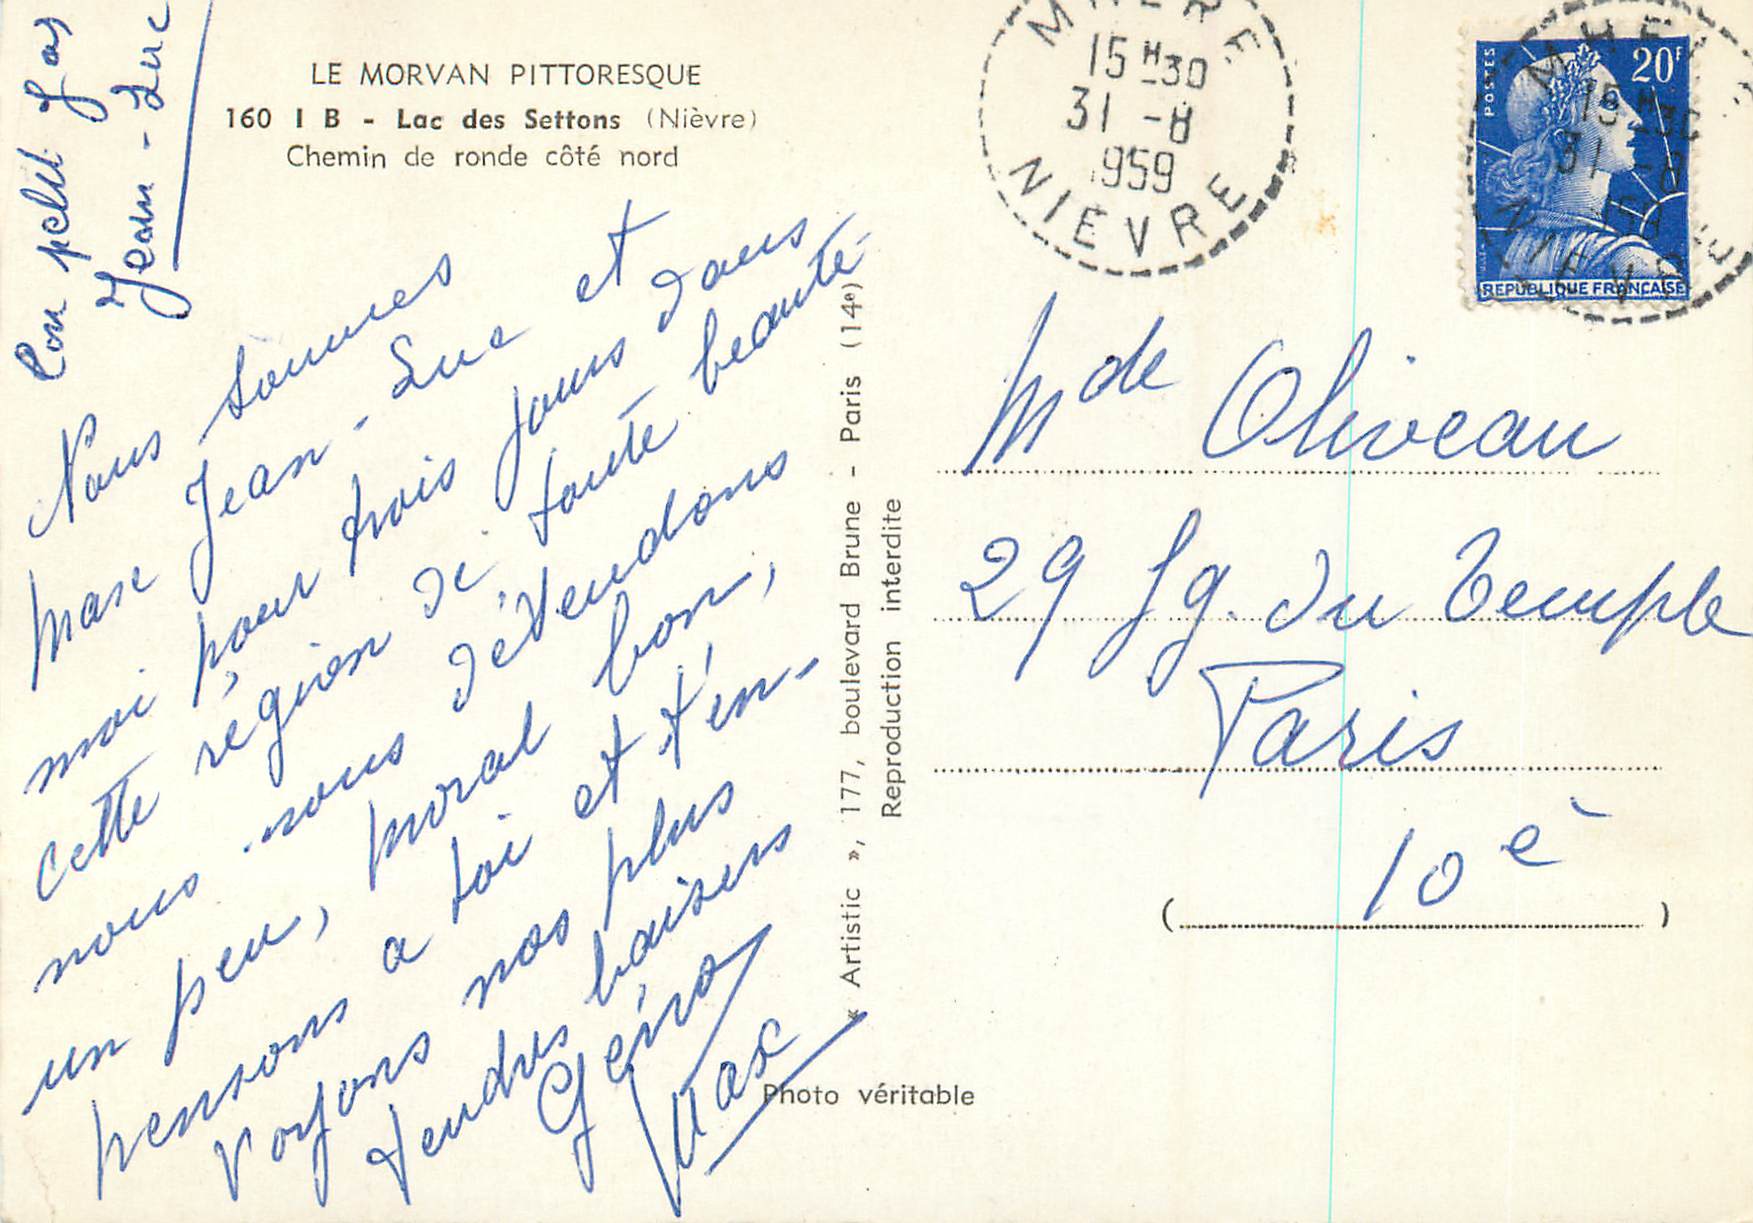 LE MORVAN PITTORESQUE
160 I B - Lac des Settons (Nièvre)
Chemin de ronde côté nord
Nous sommes
Max Jean-Luc et
moi pour trois jours dans
cette région de toute beauté
nous nous détendons
un peu, moral bon,
pensons a toi et t'en-
voyons nos plus
tendres baisers
Max
Ton petit gas
Jean-Luc
« Artistic », 177, boulevard Brune - Paris (14e)
Reproduction interdite
Photo véritable
15 H 30
31 -8
1959
NIEVRE
POSTES
20F
REPUBLIQUE FRANÇAISE
15 H 30
31 -8
NIEVRE
Mde Oliveau
29 fg. du Temple
Paris
(10è)